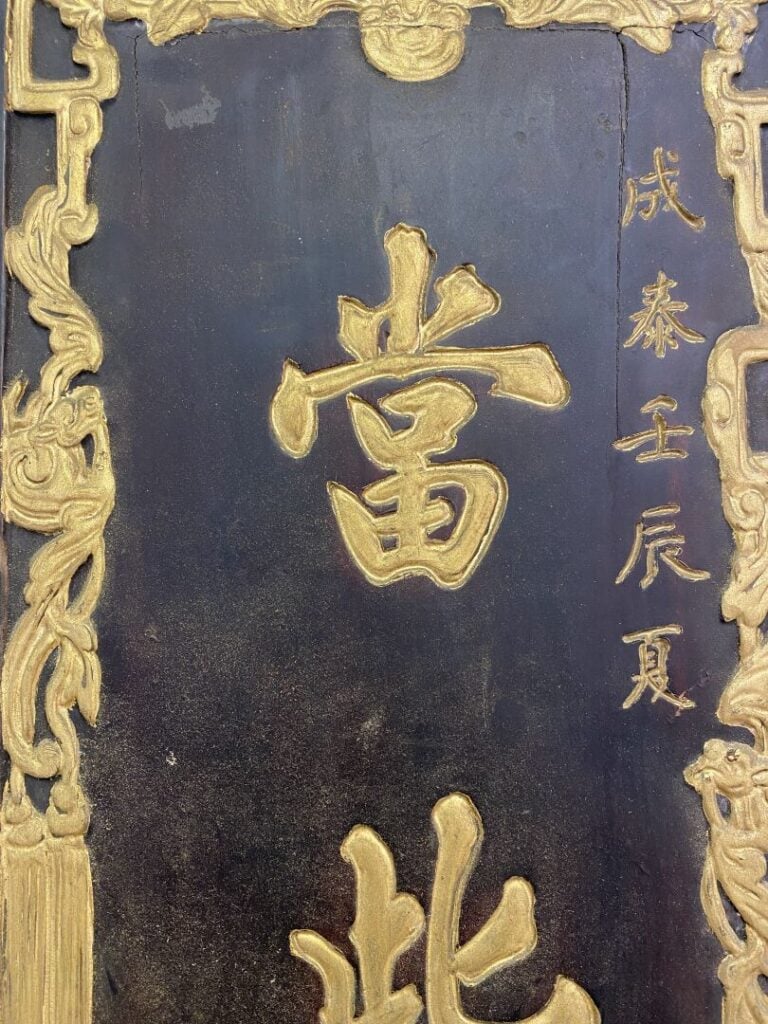 成泰壬辰夏
當此